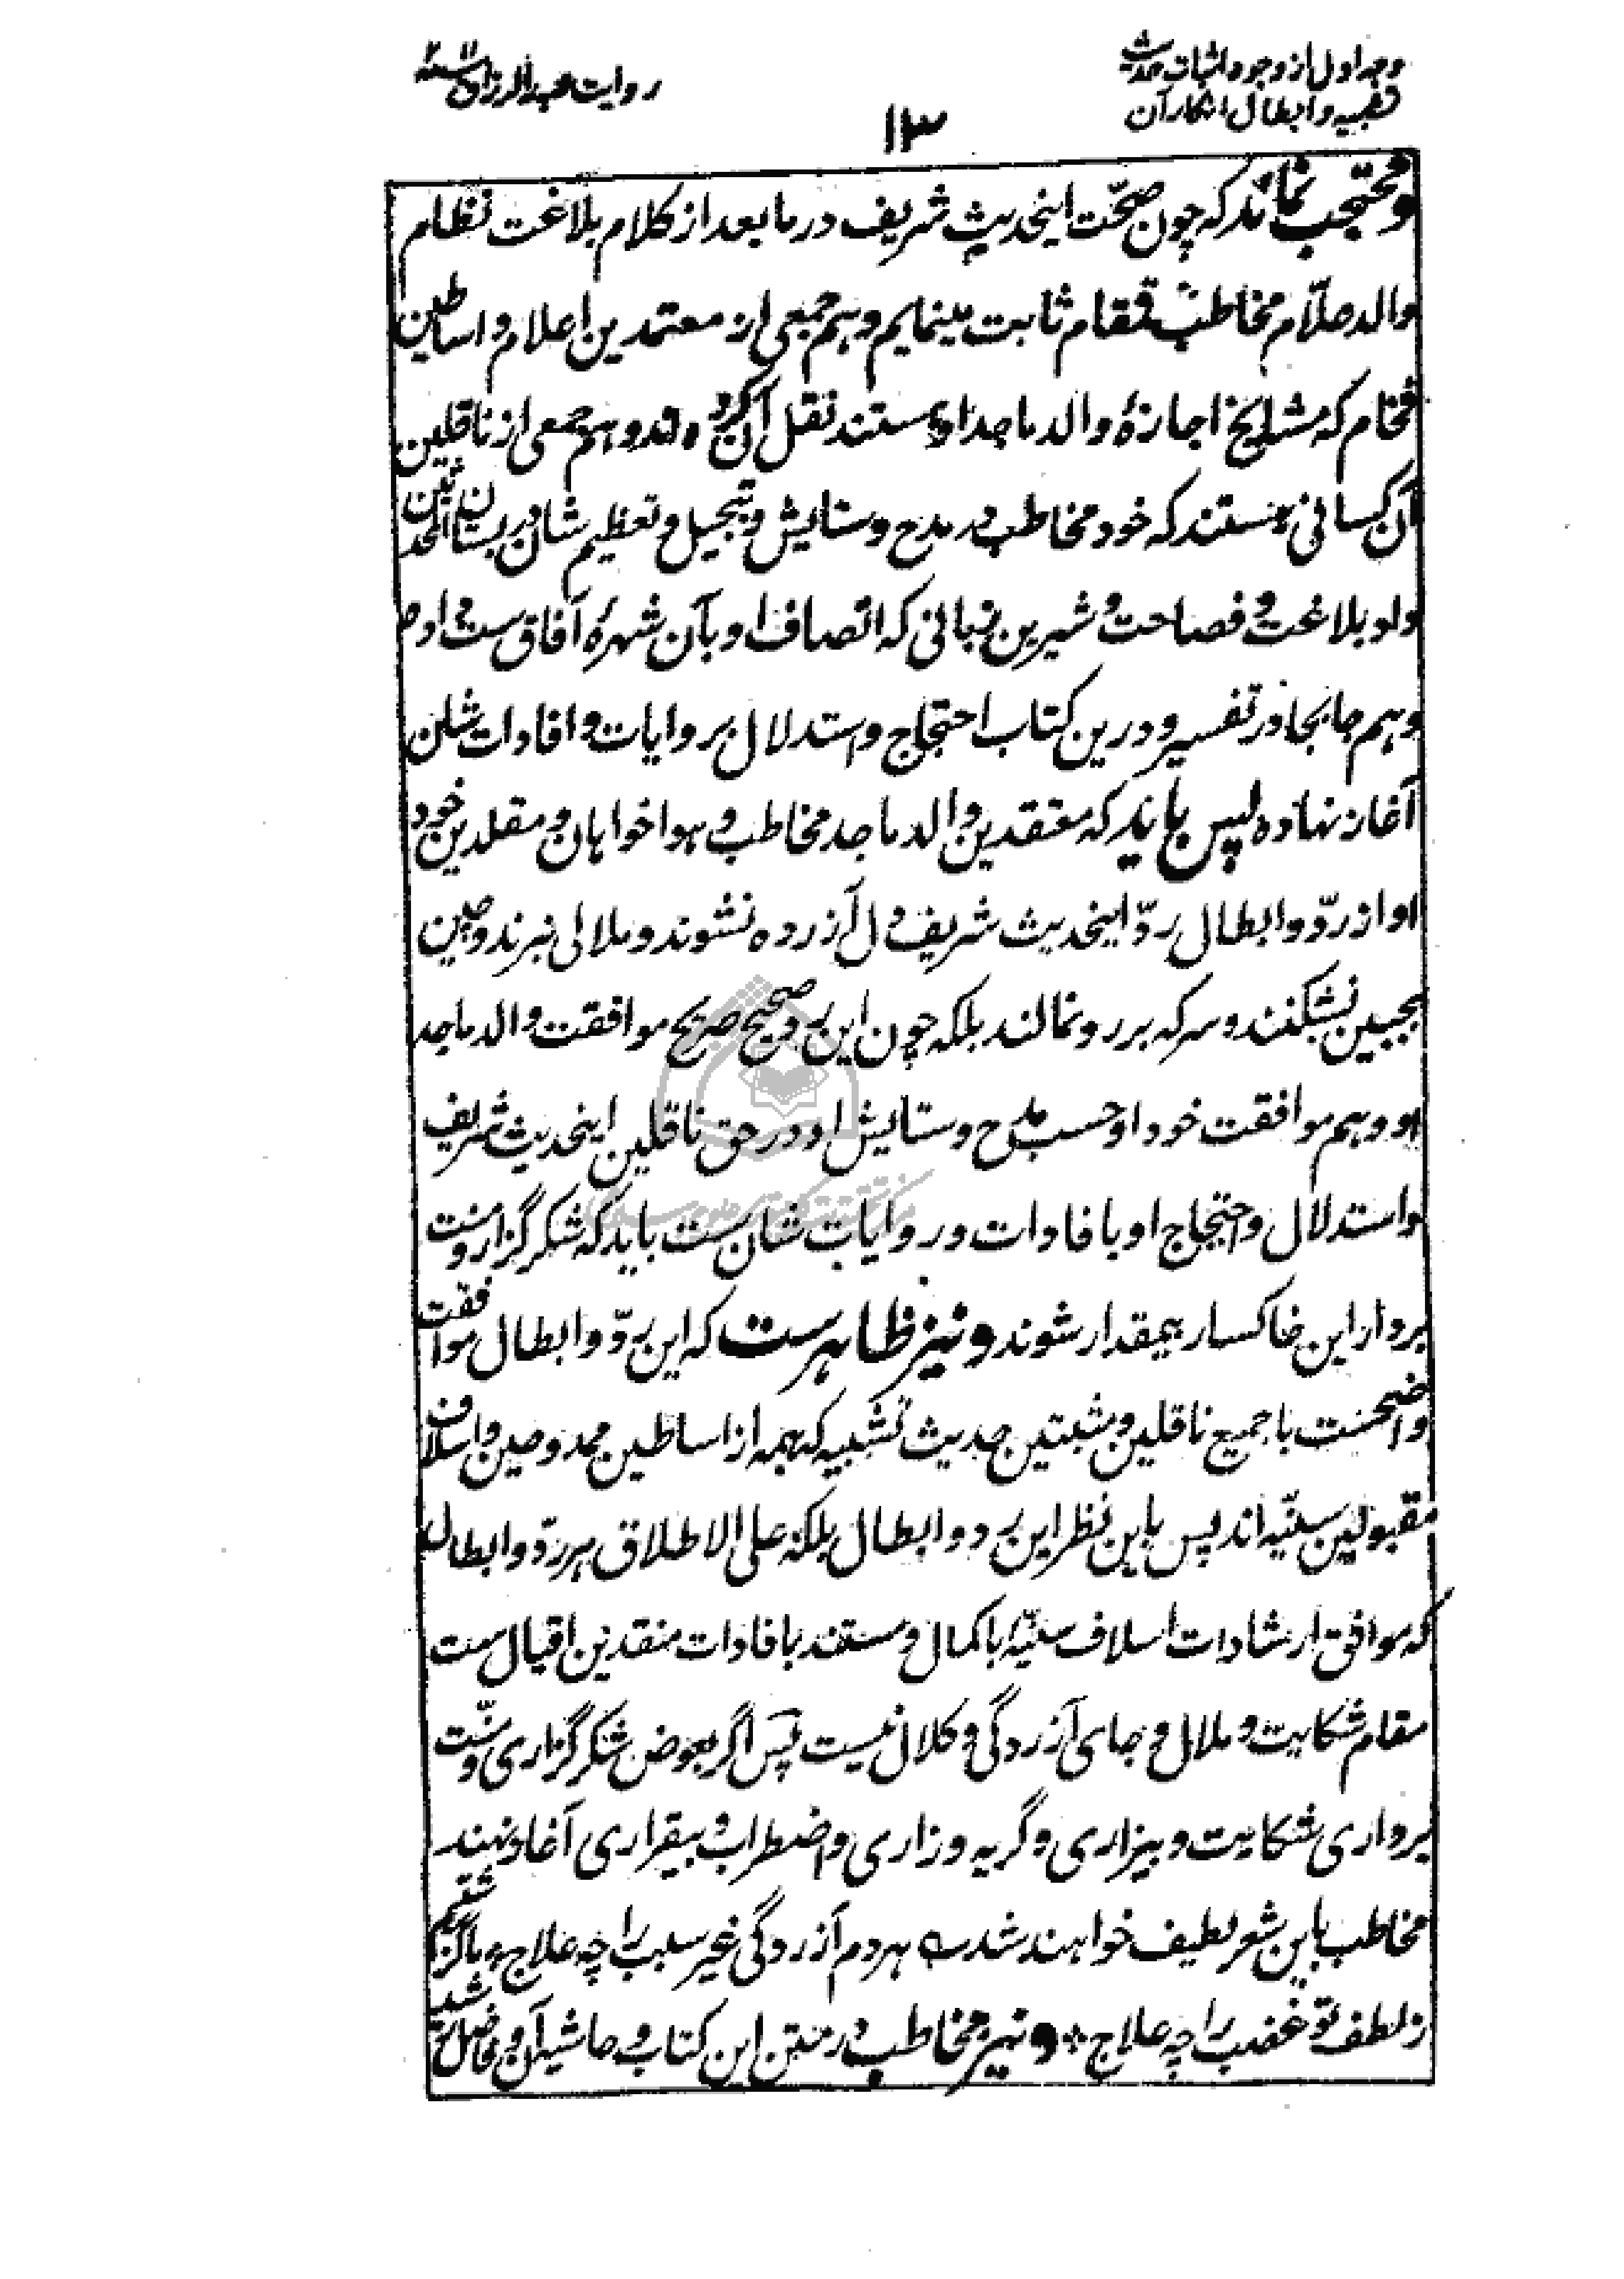 وجه اول از وجوه اثبات حدیث
تشبیه و ابطال انکار آن
روایت عبدالرزاق
۱۳
و محتجب نماند که چون صحّت اینحدیث شریف در ما بعد از کلام بلاغت نظام
والد علّام مخاطب قمقام ثابت مینمایم و هم جمعی از معتمدین اعلام و اساطین
فخام که مشایخ اجازهٔ والد ماجد او هستند نقل آن کرده اند و هم جمعی از ناقلین
آن کسانی هستند که خود مخاطب در مدح و ستایش و تبجیل و تعظیم شان در بستان المحدثین
داد بلاغت و فصاحت و شیرین زبانی که اتّصاف او بآن شهرهٔ آفاق ست داده
و هم جابجا در تفسیر و درین کتاب احتجاج و استدلال بروایات و افادات شان
آغاز نهاده پس باید که معتقدین والد ماجد مخاطب و هواخواهان و مقلدین خود
او از ردّ و ابطال ردّ اینحدیث شریف دل آزرده نشوند و ملالی نبرند و چین
بجبین نشکنند و سرکه بر رو نمالند بلکه چون این رد صحیح صریح موافقت والد ماجد
او و هم موافقت خود او حسب مدح و ستایش او در حق ناقلین اینحدیث شریف
و استدلال و احتجاج او بافادات و روایات شان ست باید که شکر گزار و منت
بردار این خاکسار بیمقدار شوند و نیز ظاهر ست که این ردّ و ابطال موافقت
واضحست با جمیع ناقلین و مثبتین حدیث تشبیه که همه از اساطین ممدوحین و اسلاف
مقبولین سنّیه اند پس باین نظر این رد و ابطال بلکه علی الاطلاق هر ردّ و ابطال
که موافق ارشادات اسلاف سنّیّه با کمال و مستند بافادات منقدین اقیال ست
مقام شکایت و ملال و جای آزردگی و کلال نیست پس اگر بعوض شکر گزاری و منّت
برداری شکایت و بیزاری و گریه و زاری و اضطراب و بیقراری آغاز نهند
مخاطب باین شعر لطیف خواهند شد ه هر دم آزردگی غیر سبب را چه علاج ء ما گذشتیم
ز لطف تو غضب را چه علاج * و نیز مخاطب در متن این کتاب و حاشیه آن و فاضل رشید